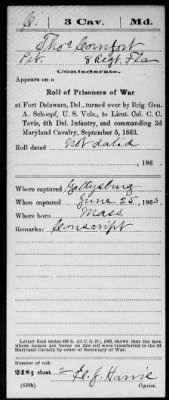 C. 3 Cav. Md.
Thos Comfort
Pvt. 8 Regt. Fla
Confederate.
Appears on a
Roll of Prisoners of War
at Fort Delaware, Del., turned over by Brig. Gen.
A. Schoepf, U. S. Vols., to Lieut. Col. C. C.
Tevis, 4th Del. Infantry, and commanding 3d
Maryland Cavalry, September 5, 1863.
Roll dated Not dated
, 186 .
Where captured Gettysburg
When captured June 25, 1863.
Where born Mass.
Remarks: Conscript
Letter filed under
whose names are borne on this roll were transferred to the 3d
Maryland Cavalry by order of Secretary of War.
Number of roll:
218; sheet 2
(639b) Copyist.